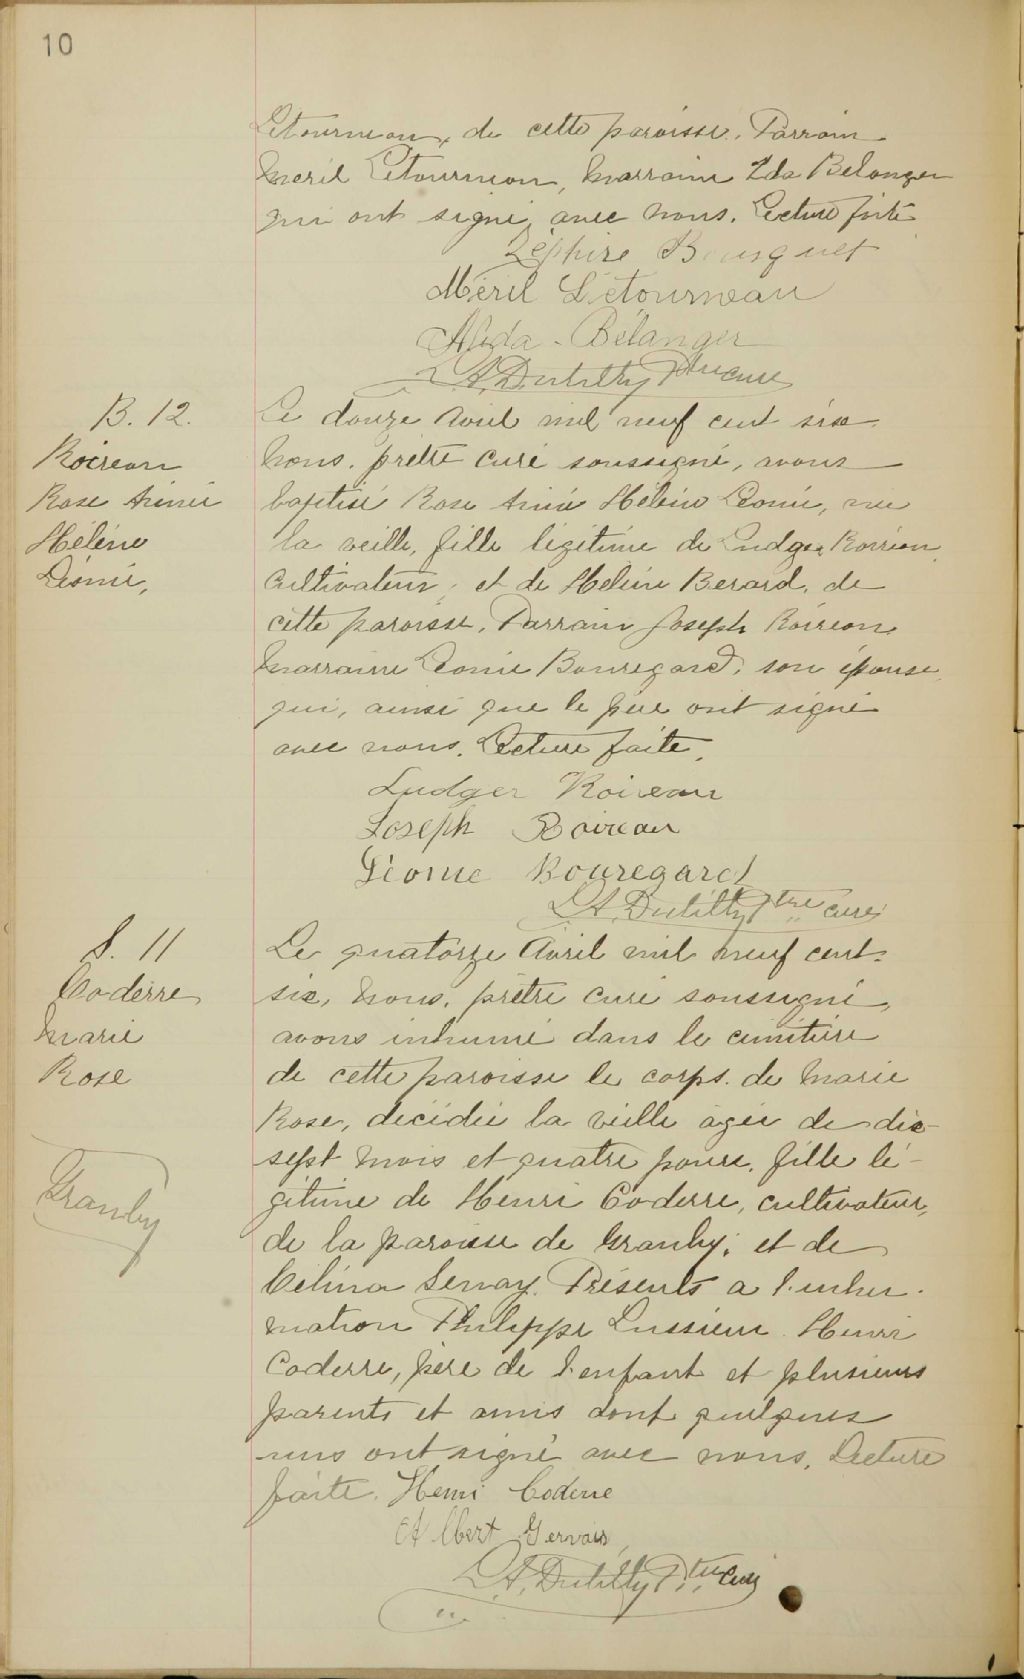 10
Letourneau, de cette paroisse. Parrain
Meril Letourneau, Marraine Ida Belanger
qui ont signé avec nous. Lecture faite
Zéphire Bousquet
Méril Létourneau
Alida - Bélanger
L.A. Dutilly Ptre curé
B. 12.
Roireau
Rose Aimée
Hélène
Léonie,
Le douze Avril mil neuf cent six.
Nous, prêtre curé soussigné, avons
baptisé Rose Aimée Hélène Léonie, née
la veille, fille légitime de Ludger Roireau
cultivateur, et de Hélène Berard, de
cette paroisse. Parrain Joseph Roireau
Marraine Léonie Bouregard, son épouse
qui, ainsi que le père ont signé
avec nous. Lecture faite.
Ludger Roireau
Joseph Roireau
Léonie Bouregard
L.A. Dutilly Ptre curé
S. 11
Coderre
Marie
Rose
Granby
Le quatorze Avril mil neuf cent-
six, Nous, prêtre curé soussigné,
avons inhumé dans le cimitière
de cette paroisse le corps de Marie
Rose, décédée la veille agée de dix-
sept mois et quatre jours, fille lé-
gitime de Henri Coderre, cultivateur,
de la paroisse de Granby, et de
Célina Senay. Présents a l'inhu-
mation Philippe Lussier Henri
Coderre, père de l'enfant et plusieurs
parents et amis dont quelques
uns ont signé avec nous. Lecture
faite. Henri Coderre
Albert Gervais
L.A. Dutilly Ptre curé